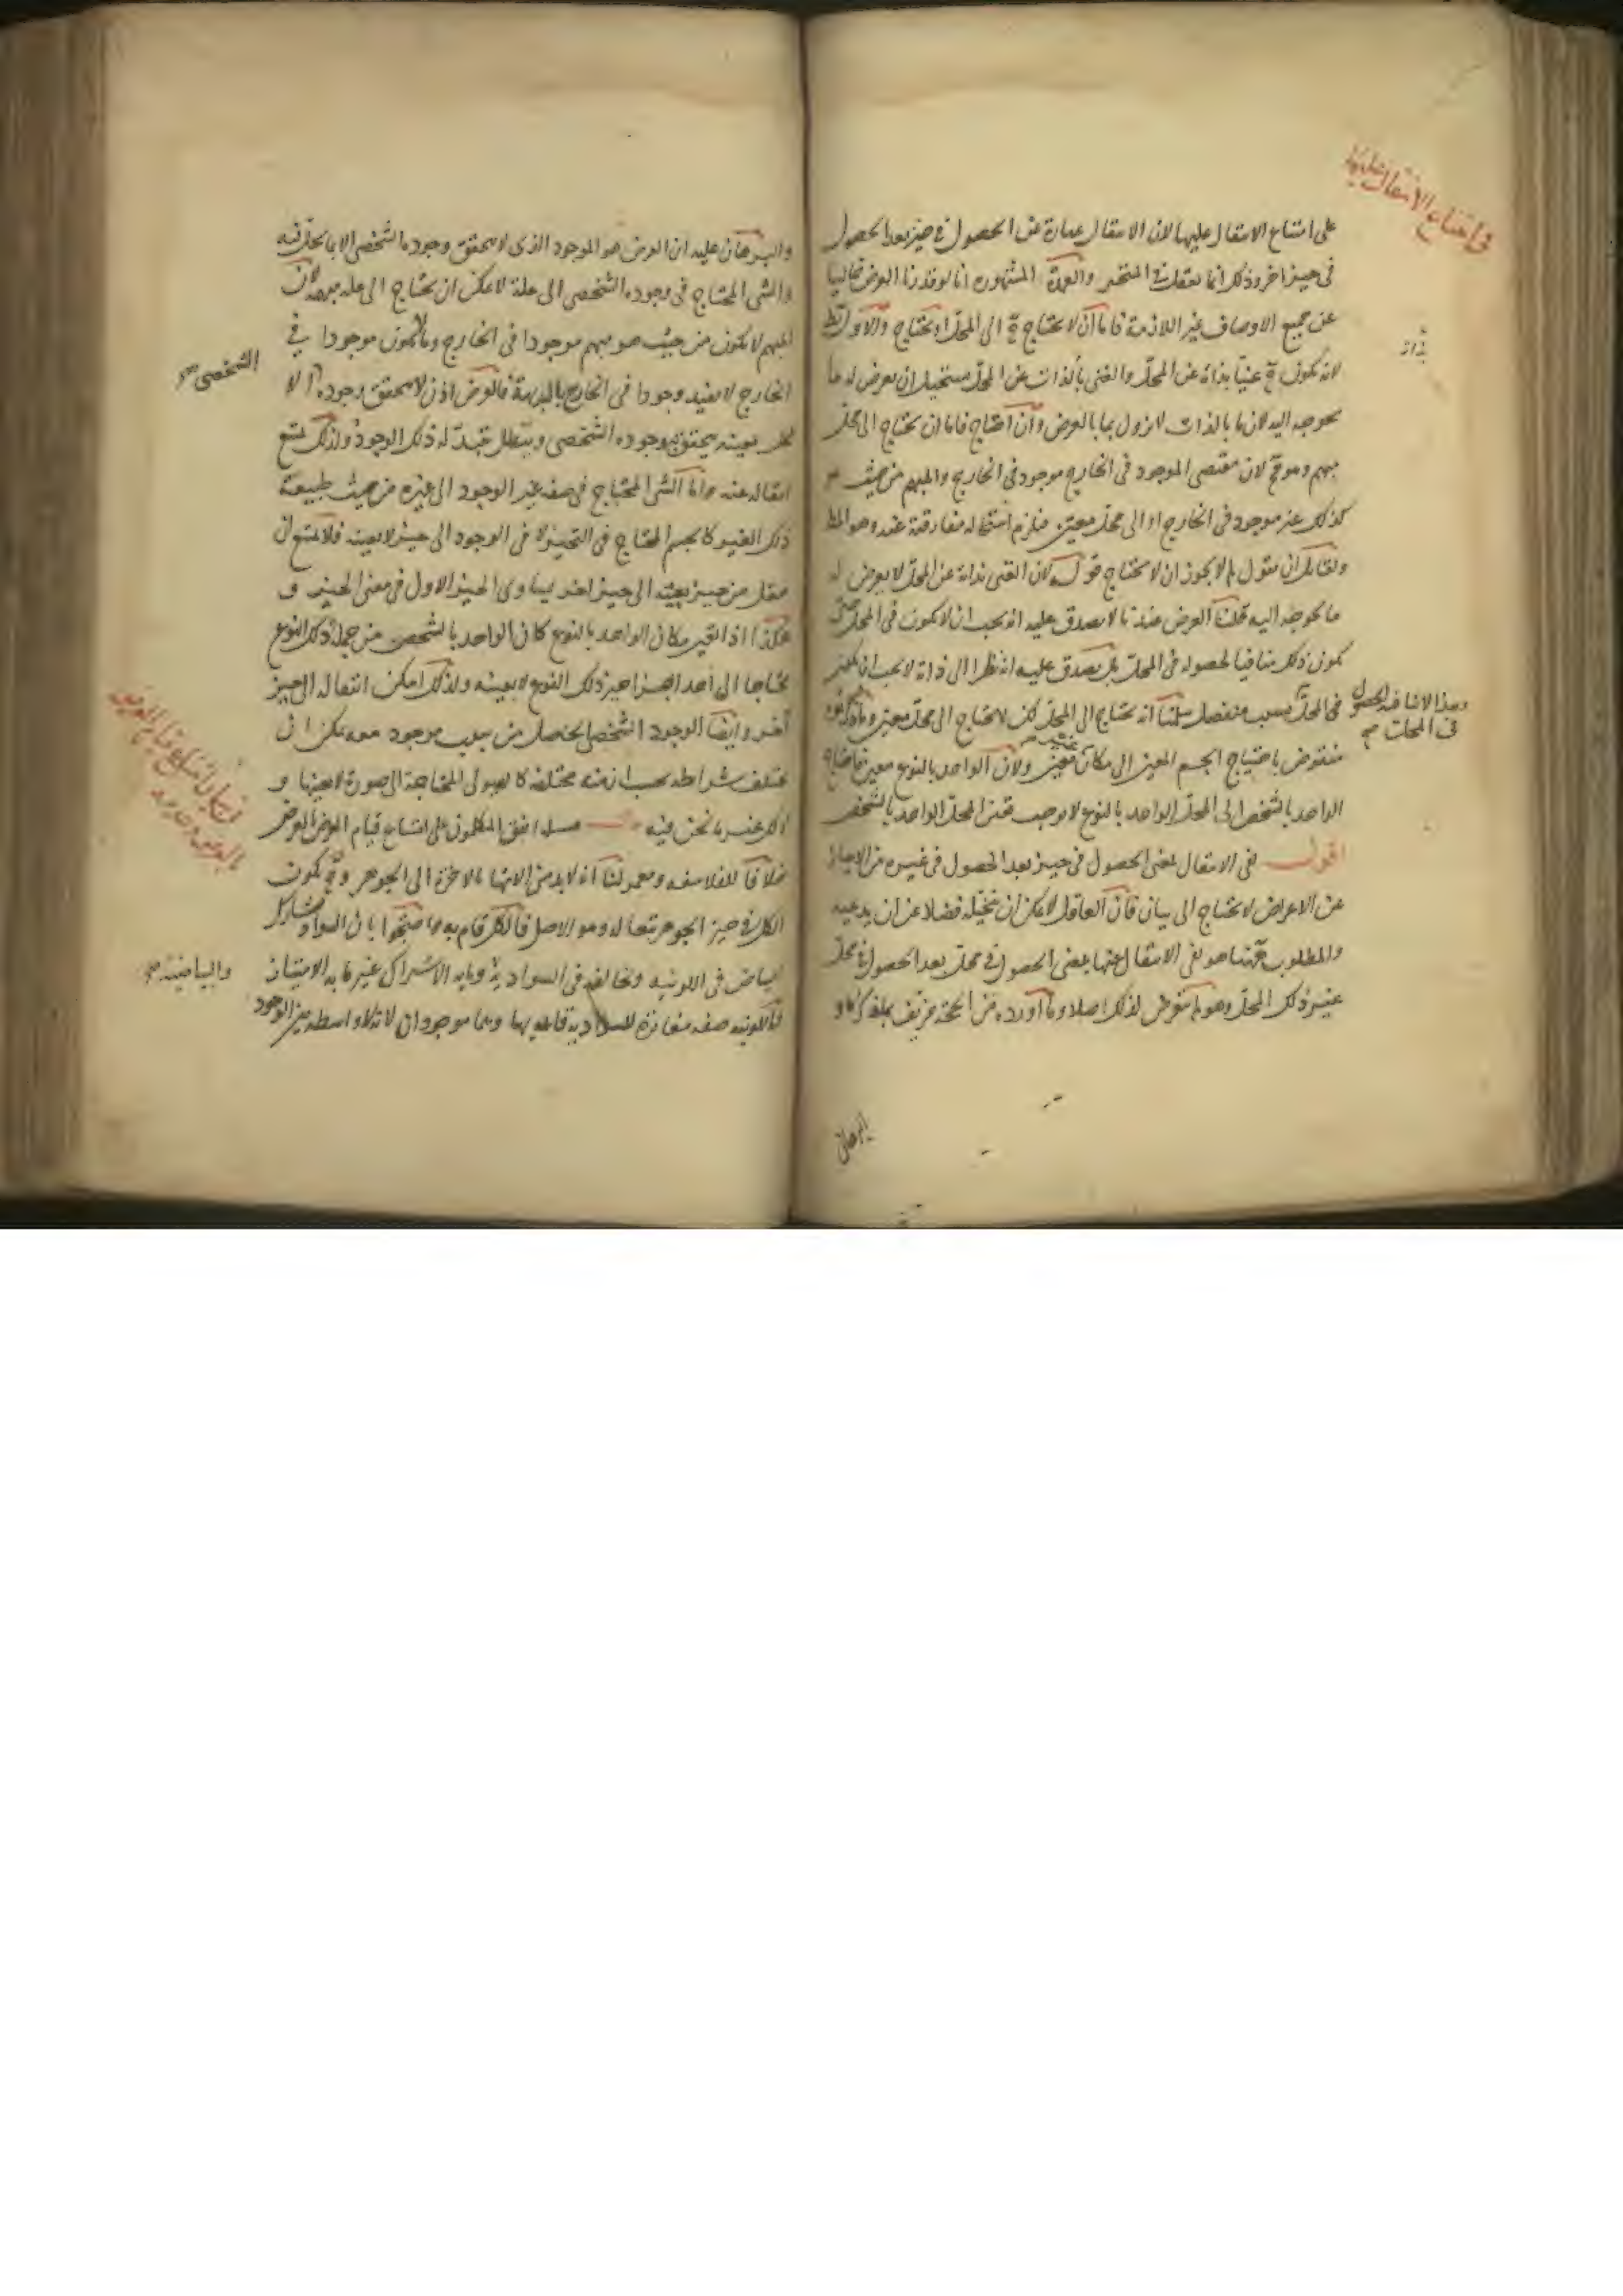 على امتناع الانتقال عليها لان الانتقال عبارة عن الحصول فى حيز بعد الحصول
فى حيز اخر وذلك انما يعقل فى المتحيز والعمدة المشهورة انا لو قدرنا العرض خاليا
عن جميع الاوصاف غير اللازمة فاما ان لا يحتاج ح الى المحل او يحتاج والاول بط
لانه يكون ح غنيا بذاته عن المحل والغنى بالذات عن المحل يستحيل ان يعرض له ما
يحوجه اليه لان ما بالذات لا يزول بما بالعرض وان احتاج فاما ان يحتاج الى محل
مبهم وهو مح لان مقتضى الموجود فى الخارج موجود فى الخارج والمبهم من حيث هو
كذلك غير موجود فى الخارج او الى محل معين فيلزم استحالة مفارقته عنه وهو المط
ولقائل ان يقول لم لا يجوز ان لا يحتاج قوله لان الغنى بذاته عن المحل لا يعرض له
ما يحوجه اليه قلنا العرض عندنا لا يصدق عليه انه يجب ان لا يكون فى المحل حتى
يكون ذلك منافيا لحصوله فى المحل بل يصدق عليه انه نظرا الى ذاته لا يجب ان يكون
فى المحل بسبب منفصل سلمنا انه يحتاج الى المحل لكن لا يحتاج الى محل معين وما ذكرتموه
وهذا لا ينافيه الحصول
فى المحل صح
منقوض باحتياج الجسم المعين الى مكان غير معين ولان الواحد بالنوع معين فاحتياج
الواحد بالشخص الى المحل الواحد بالنوع لا يوجب تعين المحل الواحد بالشخص
اقول نفى الانتقال بمعنى الحصول فى حيز بعد الحصول فى غيره من الاحياز
عن الاعراض لا يحتاج الى بيان فان العاقل لا يمكن ان يتخيله فضلا عن ان يدعيه
والمطلوب ههنا هو نفى الانتقال عنها بمعنى الحصول فى محل بعد الحصول فى محل
غير ذلك المحل وهو لم يتعرض لذلك اصلا وما اورده من الحجة مزيف بما ذكره
فى امتناع الانتقال عليها
بذاته
البرهان
والبرهان عليه ان العرض هو الموجود الذى لا يتحقق وجوده الشخصى الا بما يحل فيه
والشى المحتاج فى وجوده الشخصى الى علة لا يمكن ان يحتاج الى علة مبهمة لان
المبهم لا يكون من حيث هو مبهم موجودا فى الخارج وما لا يكون موجودا فى
الخارج لا يفيد وجودا فى الخارج بالبديهة فالعرض اذن لا يتحقق وجوده الا
الشخصى صح
بمحل بعينه يتحقق به وجوده الشخصى ويبطل بتبدله ذلك الوجود ولذلك يمتنع
انتقاله عنه واما الشى المحتاج فى صفة غير الوجود الى غيره من حيث طبيعة
ذلك الغير كالجسم المحتاج فى التحيز لا فى الوجود الى حيز لا بعينه فلا يمتنع ان
ينتقل من حيز بعينه الى حيز اخر يساوى الحيز الاول فى معنى الحيز و
هكذا اذا تعين مكان الواحد بالنوع كان الواحد بالشخص من جملة ذلك النوع
محتاجا الى احد اجزا حيز ذلك النوع لا بعينه ولذلك امكن انتقاله الى حيز
اخر وايضا الوجود الشخصى الحاصل من سبب موجود معه يمكن ان
يختلف شرائطه بحسب ازمنة مختلفة كالهيولى المحتاجة الى صورة لا بعينها و
ذلك غير ما نحن فيه مسئلة اتفق المتكلمون على امتناع قيام العرض بالعرض
خلافا للفلاسفة ومعمر لنا انه لا بد من الانتها بالاخرة الى الجوهر وح يكون
الكل فى حيز الجوهر تبعا له وهو الاصل فالكل قام به واحتجوا بان السواد يشارك
البياض فى اللونية ويخالفه فى السوادية وما به الاشتراك غير ما به الامتياز
والبياضية صح
فاللونية صفة مغايرة للسوادية قائمة بها وهما موجودان لانه لا واسطة بين الوجود
فى بيان امتناع قيام العرض
بالعرض